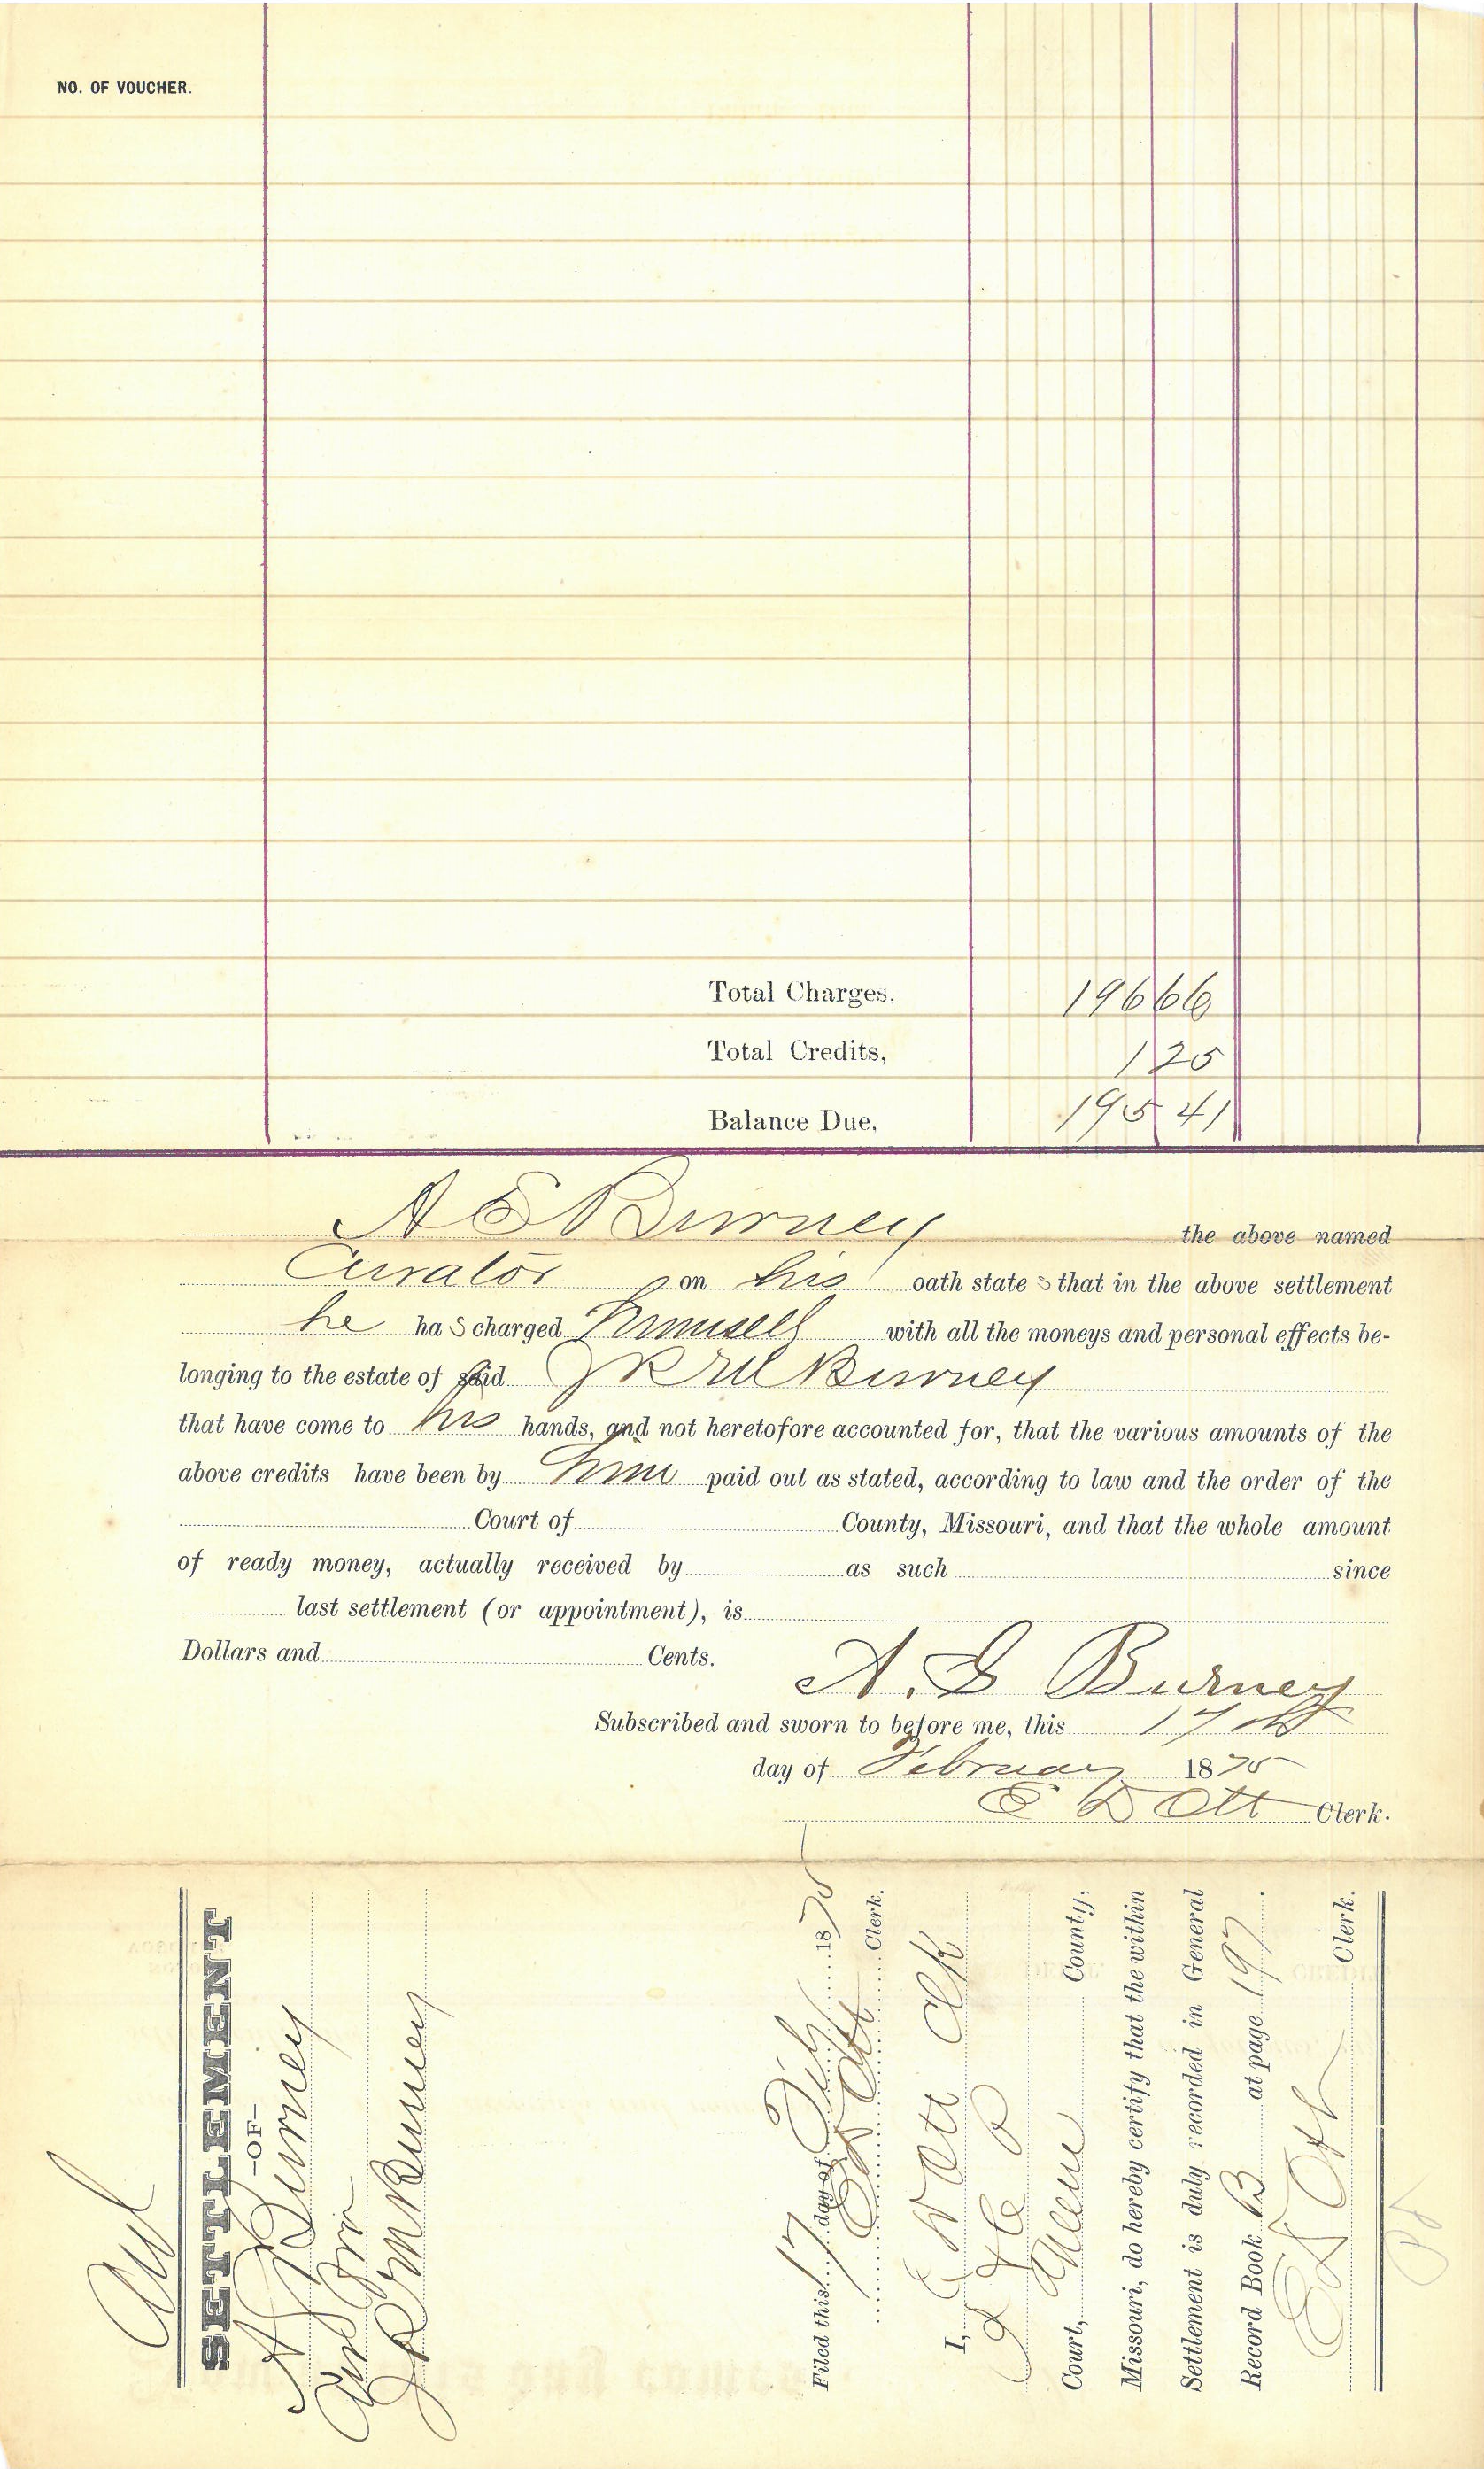 NO. OF VOUCHER.
Total Charges, 196 66
Total Credits, 1 25
Balance Due, 195 41
A E Burney the above named
Curator on his oath states that in the above settlement
he has charged himself with all the moneys and personal effects be-
longing to the estate of said J R M Burney
that have come to his hands, and not heretofore accounted for, that the various amounts of the
above credits have been by him paid out as stated, according to law and the order of the
Court of County, Missouri, and that the whole amount
of ready money, actually received by as such since
last settlement (or appointment), is
Dollars and Cents.
A. E Burney
Subscribed and sworn to before me, this 17th
day of February 1875
E D Ott Clerk.
SETTLEMENT
-OF-
A Burney
J R M Burney
Filed this 17 day of Feb 1875
E D Ott Clerk.
I, E D Ott Clk
Court, Greene County,
Missouri, do hereby certify that the within
Settlement is duly recorded in General
Record Book B at page 197.
E D Ott Clerk.